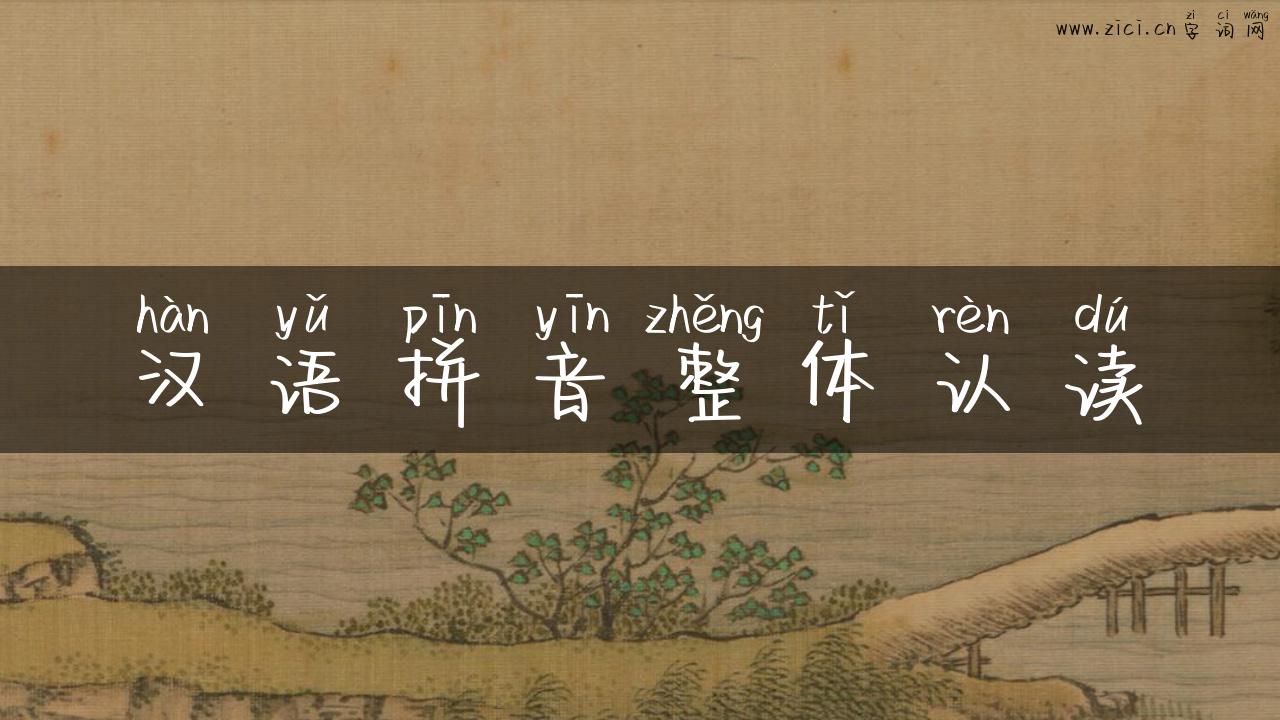 zì cí wǎng
www.zici.cn 字词网
hàn yǔ pīn yīn zhěng tǐ rèn dú
汉语拼音整体认读